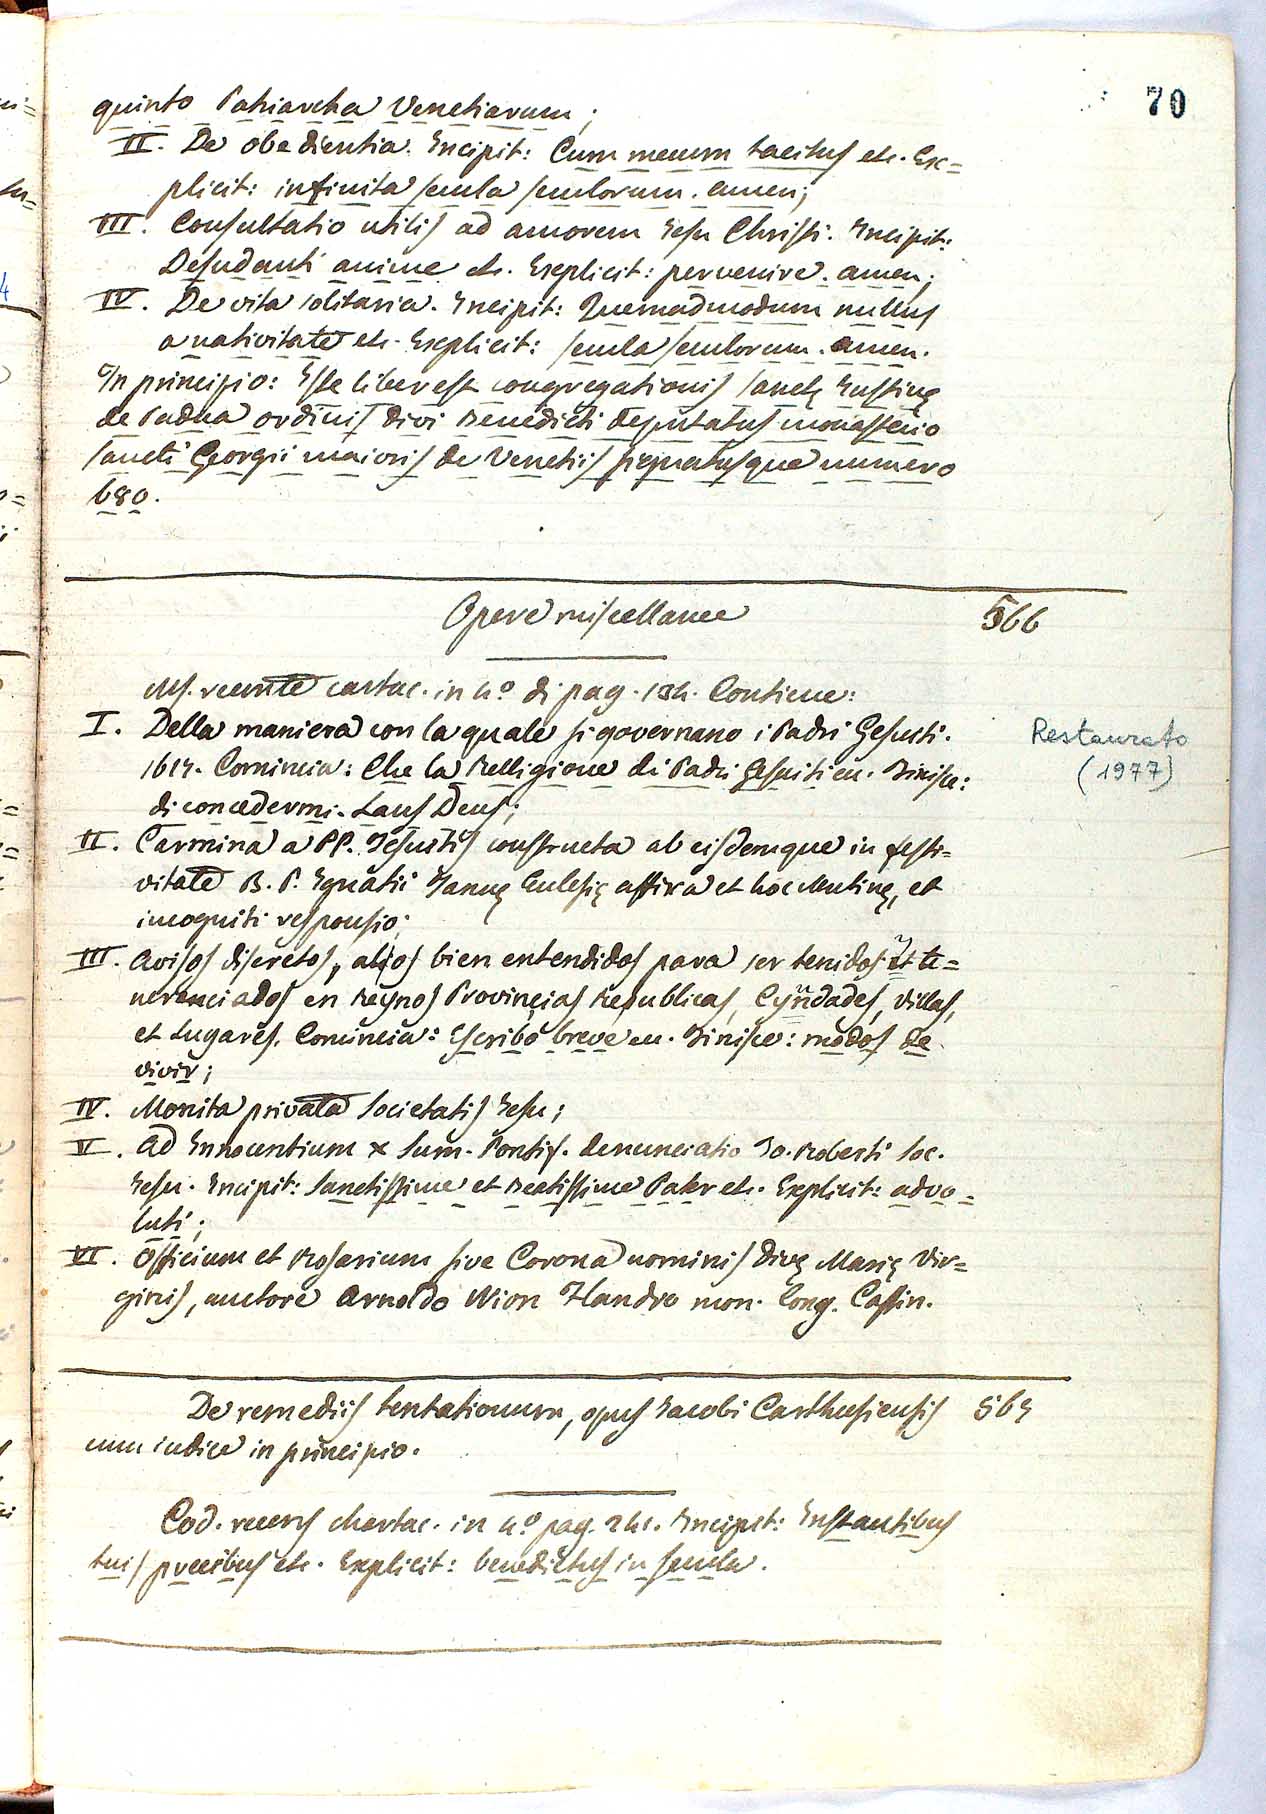 70
quinto Patriarcha Venetiarum;
II. De obedientia. Incipit: Cum mecum tacitus etc. Ex=
plicit: infinita secula seculorum. amen;
III. Consultatio utilis ad amorem Jesu Christi. Incipit:
Desudanti anime etc. Explicit: pervenire. amen;
IV. De vita solitaria. Incipit: Quemadmodum nullus
a nativitate etc. Explicit: secula seculorum. amen.
In principio: Iste liber est congregationis sanctę Justinę
de Padua ordinis divi Benedicti deputatus monasterio
sancti Georgii maioris de Venetiis signatusque numero
680.
Opere miscellanee 566
Ms. recente cartac. in 4º di pag. 184. Contiene:
I. Della maniera con la quale si governano i Padri Gesuiti.
1617. Comincia: Che la Relligione di Padri Gesuiti ec. Finisce:
di concedermi. Laus Deus;
Restaurato
(1977)
II. Carmina a PP. Jesuitis constructa ab eisdemque in festi=
vitate B. P. Ignatii Januę Eclesię affixa et hoc Mutinę, et
incogniti responsio;
III. Avisos discretos, alios bien entendidos para ser tenidos et te=
nerenciados en Reynos Provincias Republicas, Cyudades, Villas,
et Lugares. Comincia: Escribo breve ec. Finisce: modos de
vivir;
IV. Monita privata Societatis Jesu;
V. Ad Innocentium X Sum. Pontif. denunciatio Jo. Roberti Soc.
Jesu. Incipit: Sanctissime et Beatissime Pater etc. Explicit: advo=
luti;
VI. Officium et Rosarium sive Corona nominis Divę Marię Vir=
ginis, auctore Arnoldo Wion Flandro mon. Cong. Cassin.
De remediis tentationum, opus Jacobi Carthusiensis 567
cum indice in principio.
Cod. recens chartac. in 4º pag. 241. Incipit: Instantibus
tuis precibus etc. Explicit: benedictus in secula.